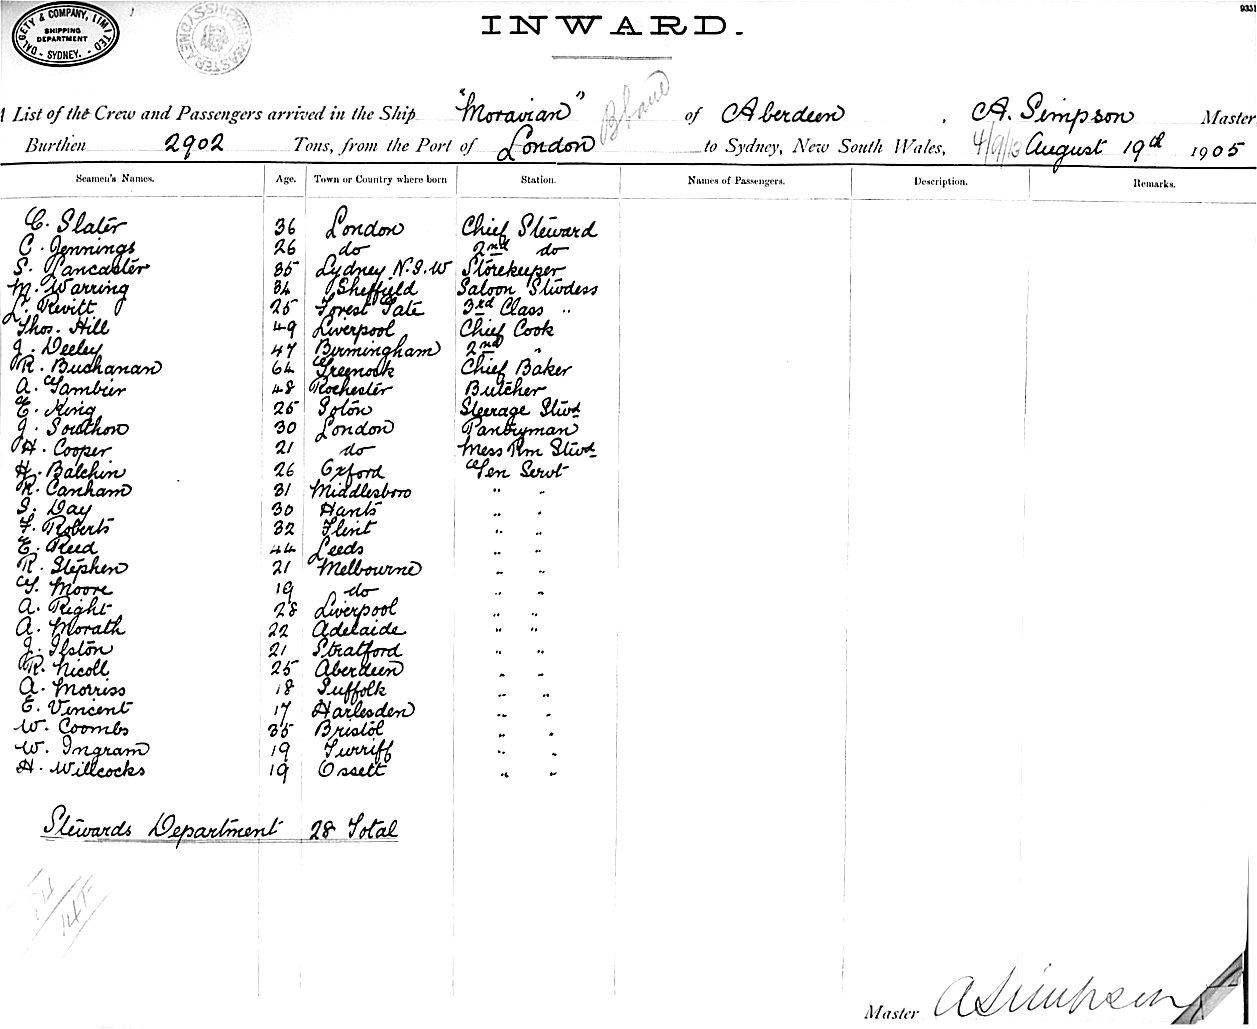 DALGETY & COMPANY, LIMITED
SHIPPING
DEPARTMENT
- SYDNEY. -
INWARD.
List of the Crew and Passengers arrived in the Ship "Moravian" of Aberdeen , A. Simpson Master
Burthen 2902 Tons, from the Port of London to Sydney, New South Wales, August 19th 1905
Seamen's Names. Age. Town or Country where born Station. Names of Passengers. Description. Remarks.
C. Slater 36 London Chief Steward
C. Jennings 26 do 2nd do
S. Lancaster 35 Sydney N.S.W Storekeeper
M. Warring 34 Sheffield Saloon Stwdess
L. Revitt 25 Forest Gate 3rd Class "
Thos. Hill 49 Liverpool Chief Cook
J. Deeley 47 Birmingham 2nd "
R. Buchanan 64 Greenock Chief Baker
A. Gambier 48 Rochester Butcher
E. King 25 Solon Steerage Stwd
J. Southon 30 London Pantryman
H. Cooper 21 do Mess Rm Stwd
H. Balchin 26 Oxford Gen Servt
R. Canham 31 Middlesboro " "
S. Day 30 Hants " "
F. Roberts 32 Flint " "
E. Reed 44 Leeds " "
R. Stephen 21 Melbourne " "
G. Moore 19 do " "
A. Right 28 Liverpool " "
A. Morath 22 Adelaide " "
J. Ilston 21 Stratford " "
R. Nicoll 25 Aberdeen " "
A. Morriss 18 Suffolk " "
E. Vincent 17 Harlesden " "
W. Coombs 35 Bristol " "
W. Ingram 19 Turriff " "
H. Willcocks 19 Ossett " "
Stewards Department 28 Total
Master A Simpson